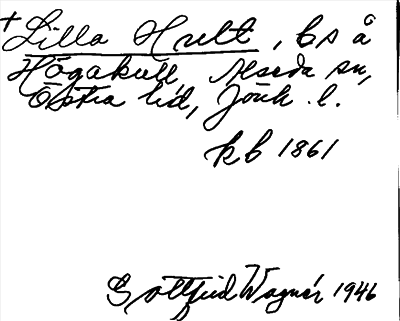 +Lilla Hult, bs å
Högakull, Alseda sn,
Östra hd, Jönk. l.
kb 1861
Gottfrid Wagnér 1946